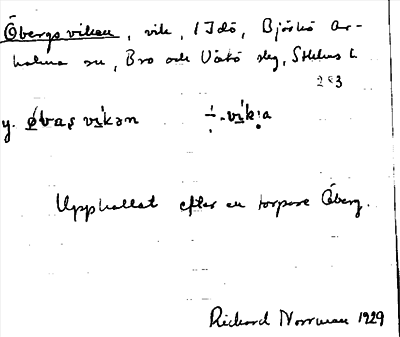 Öbergsviken, vik, I Idö, Björkö Ar-
holma sn, Bro och Vätö skg, Sthlms l.
283
y. øbaṣ vikən ÷-vik:a
Uppkallat efter en torpare Öberg.
Rickard Norrman 1929